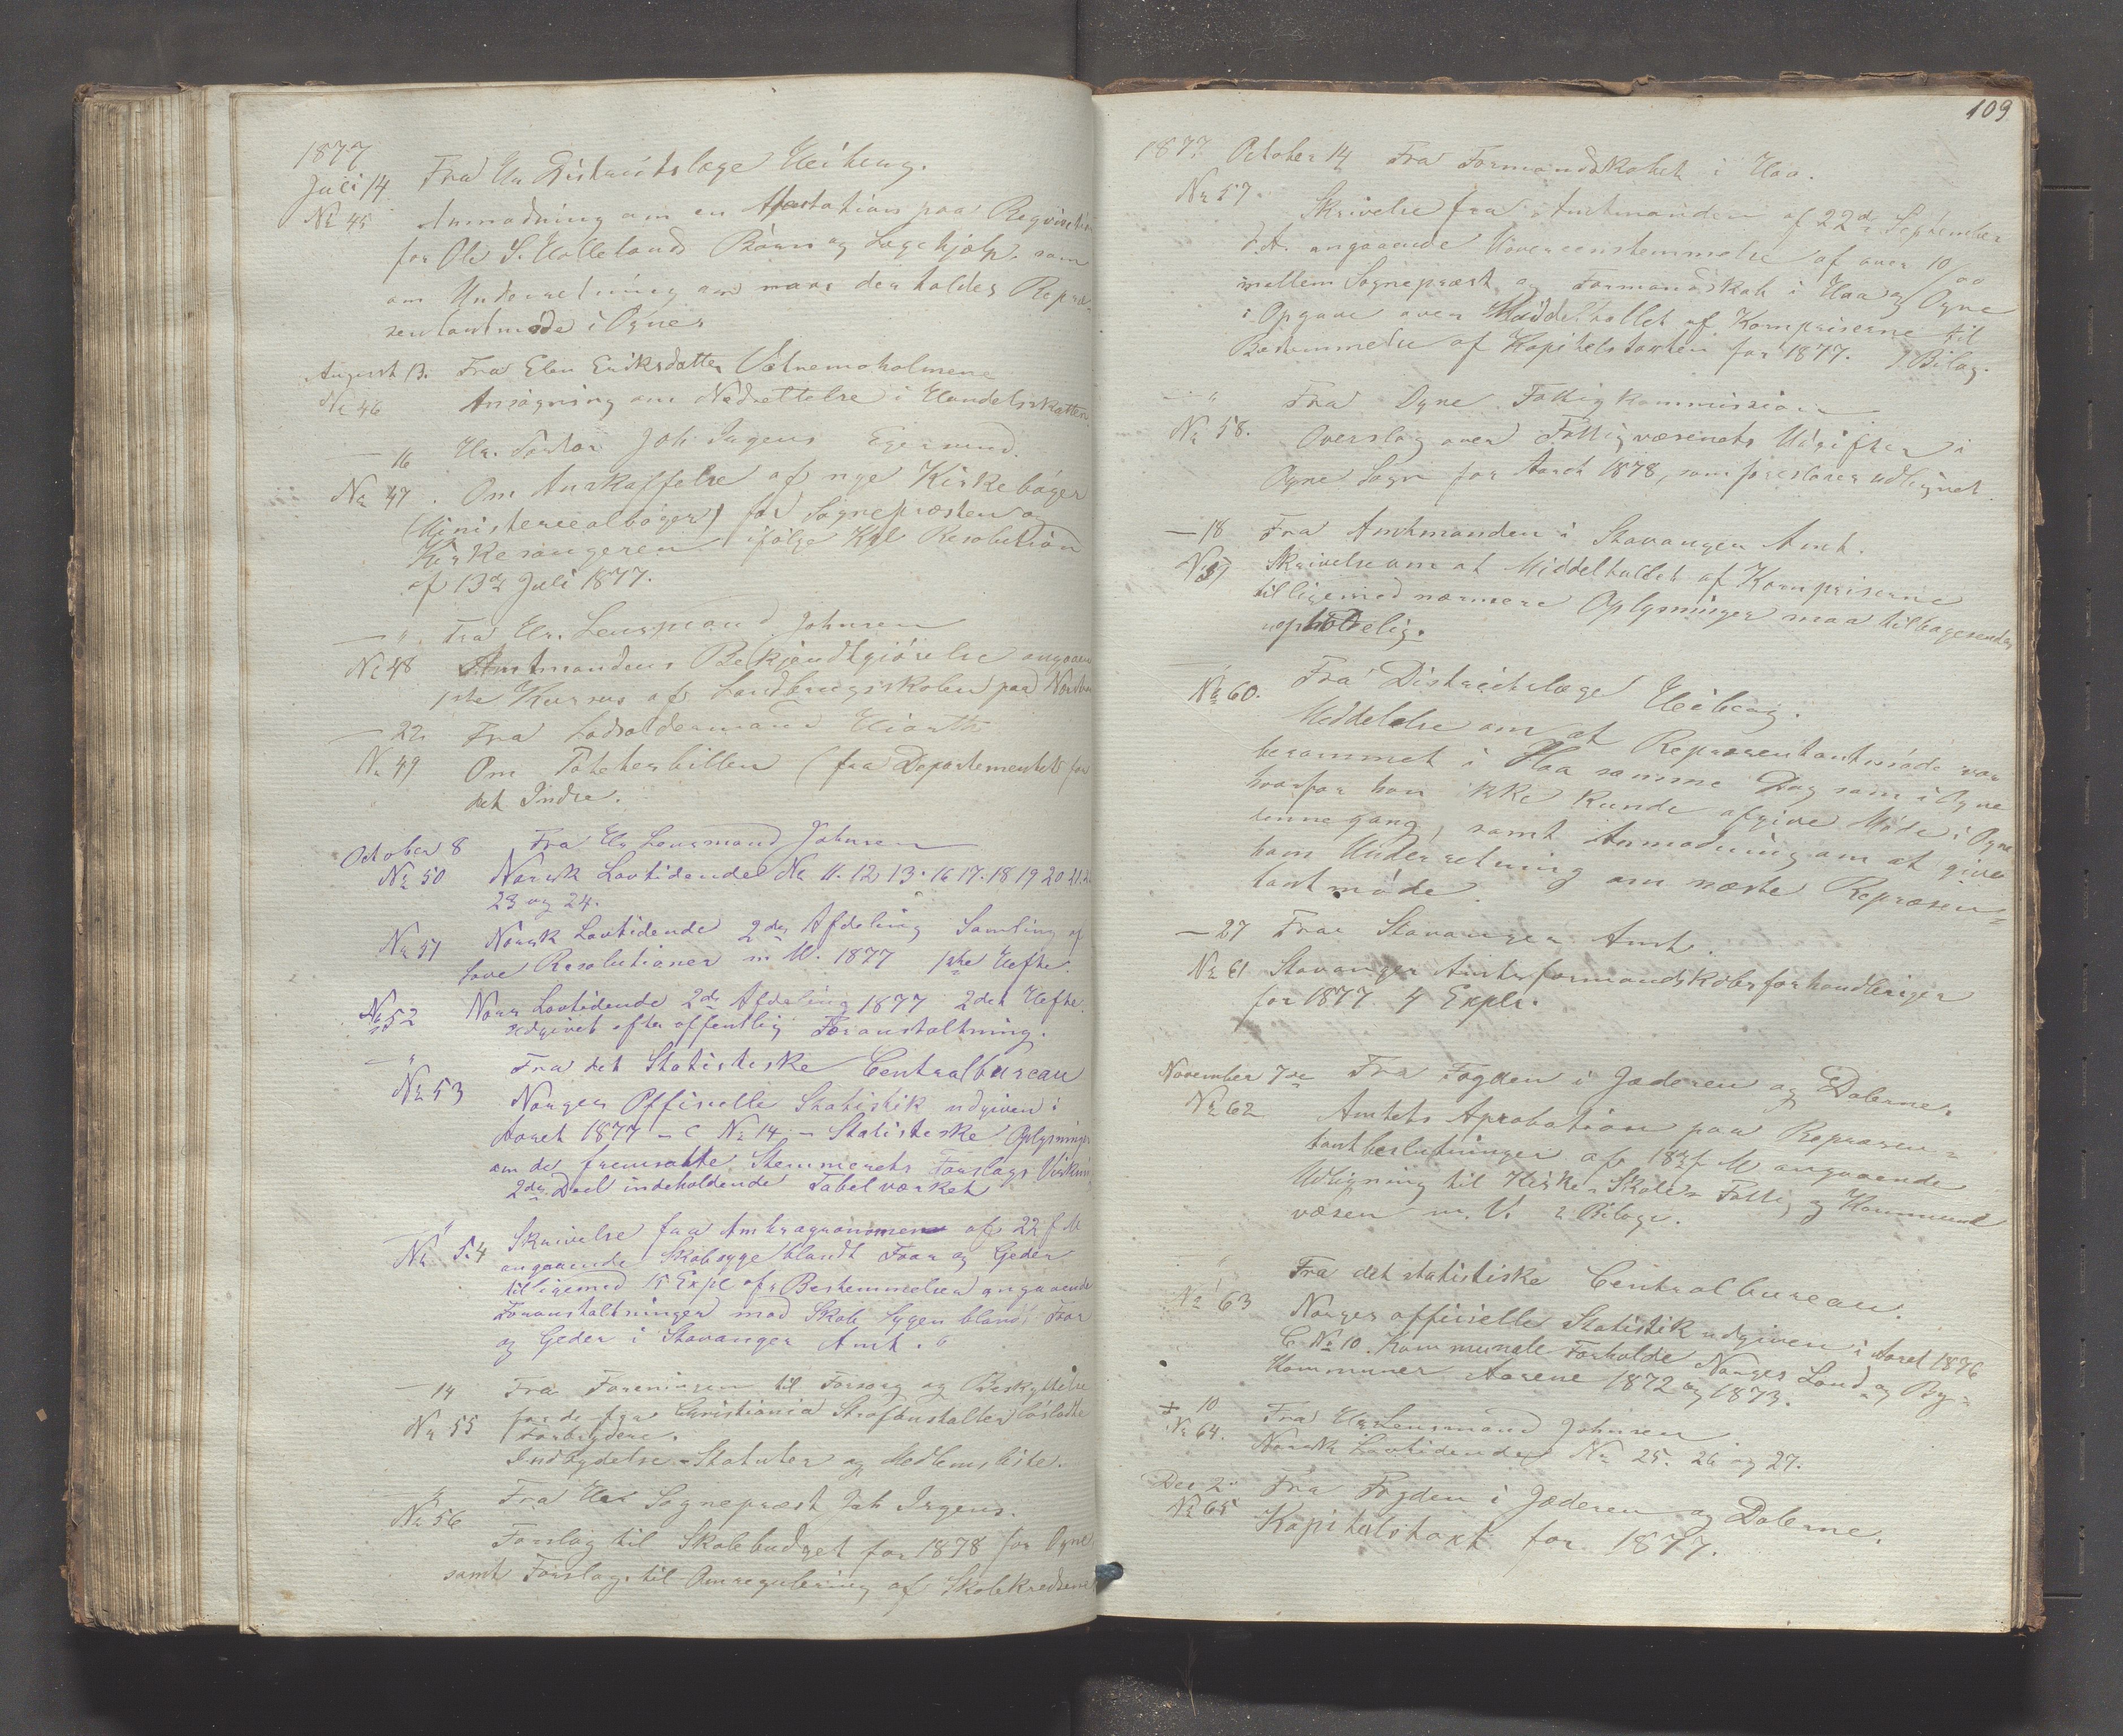 1877
Juli 14 Fra Hr Districtslæge Heiberg.
No 45 Anmodning om en Attestation paa Reqvisition
for Ole S. Hollelands Børns og Lægehjælp, samt
om Underretning om naar der holdes Repræ-
sentantmøde i Ogne
August 13. Fra Elen Eriksdatter
No 46 Ansøgning om Nedsættelse i Handelsskatten
— 16 Hr. Pastor Joh Irgens Egersund.
No 47. Om Anskaffelse af nye Kirkebøger
(Ministerealbøger) for Sognepræsten og
Kirkesangeren ifølge Kgl Resolution
af 13de Juli 1877.
— " Fra Hr. Lensmand Johnsen
No 48 Amtmandens Bekjendtgjørelse angaaende
1ste Kursus af Landbrugsskolen paa
— 22 Fra Lodsoldermand
No 49 Om Potetesbillen (fra Departementet for
det Indre.
October 8 Fra Hr Lensmand Johnsen
No 50 Norsk Lovtidende No 11. 12 13. 16 17. 18 19 20 21. 22
23 og 24.
No 51 Norsk Lovtidende 2den Afdeling Samling af
Love Resolutioner m. V. 1877 1ste Hefte.
No 52 Norsk Lovtidende 2den Afdeling 1877 2det Hefte
udgivet efter offentlig Foranstaltning.
— " Fra det Statistiske Centralbureau
No 53 Norges Officielle Statistik udgiven i
Aaret 1877 — C No 14 — Statistiske Oplysninger
om de fremsatte Stemmerets Forslags Virkning
2den Deel indeholdende Tabelværket
"
No 54 Skrivelse fra Amtsagronomen af 22 f M
angaaende Skabsyge blandt Faar og Geder
tilligemed 15 Expl af Bestemmelser angaaende
Foranstaltninger mod Skab Sygen blandt Faar
og Geder i Stavanger Amt.
— 14 Fra Foreningen til Forsorg og Beskyttelse
No 55 for de fra Christiania Strafanstalter løsladte
Forbrydere.
Indbydelse - Statuter og Medlemsliste.
— " Fra Herr Sognepræst Joh Irgens.
No 56
Forslag til Skolebudget for 1878 for Ogne
samt Forslag til Omregulering af Skolekredsene
109
1877. October 14 Fra Formandskabet i Haa.
No 57 Skrivelse fra Amtmanden af 22de September
d. A. angaaende Uoverensstemmelse af over 10/00
mellem Sognepræst og Formandskab i Haa og Ogne
i Opgave over Middeltallet af Kornpriserne til
Bestemmelse af Kapitelstaxten for 1877. 7 Bilag.
— " Fra Ogne Fattigkommission
No 58. Overslag over Fattigvæsenets Udgifter i
Ogne Sogn for Aaret 1878, som foreslaaes udlignet.
— 18 Fra Amtmanden i Stavanger Amt.
No 59 Skrivelse om at Middeltallet af Kornpriserne
tilligemed nærmere Oplysninger maa tilbagesendes
uopholdelig.
Fra Districtslæge Heiberg.
No 60. Meddelelse om at Repræsentantmøde var
berammet i Haa samme Dag som i Ogne
hvorfor han ikke kunde afgive Møde i Ogne
denne gang, samt Anmodning om at give
ham Underretning om næste Repræsen-
tantmøde.
— 27 Fra Stavanger Amt.
No 61 Stavanger Amtsformandskabsforhandlinger
for 1877. 4 Expls.
November 7de Fra Fogden i Jæderen og Dalerne.
No 62 Amtets Aprobation paa Repræsen-
tantbeslutninger af 18de f M angaaende
Udligning til Kirke- Skole- Fattig og Kommune
væsen m. V. 2 Bilage.
" Fra det statistiske Centralbureau.
No 63 Norges officielle Statistik udgiven i Aaret 1876
C. No 10. Kommunale Forholde Norges Land- og By-
Kommuner Aarene 1872 og 1873.
— 10 Fra Hr Lensmand Johnsen
No 64. Norsk Lovtidende No 25. 26 og 27.
Dec 2 Fra Fogden i Jæderen og Dalerne.
No 65 Kapitelstaxt for 1877.